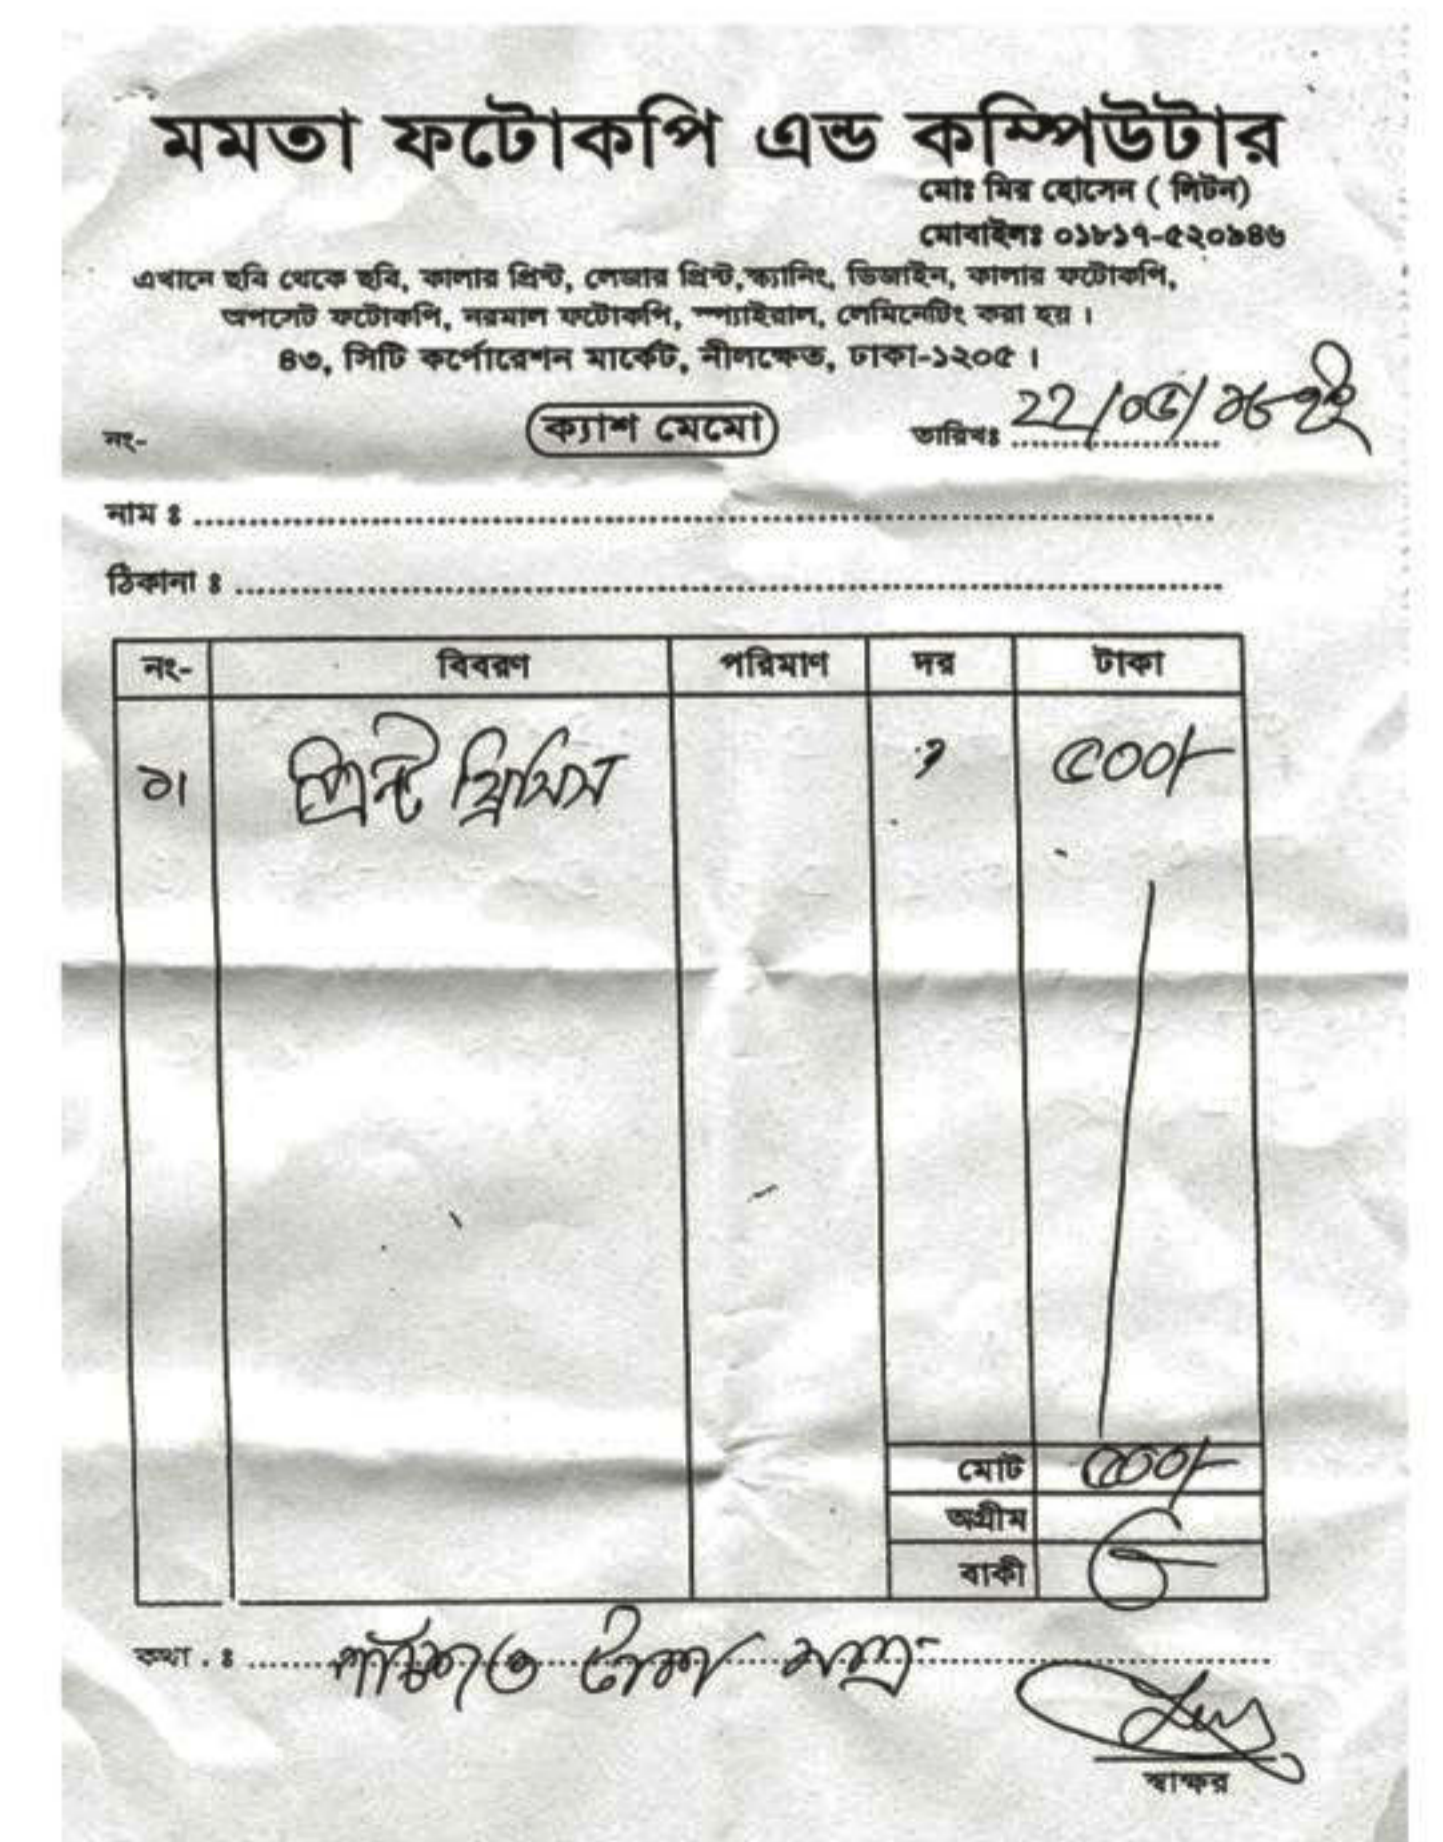 মমতা ফটোকপি এন্ড কম্পিউটার
মোঃ মির হোসেন ( লিটন)
মোবাইলঃ ০১৮১৭-৫২০৯৪৬
এখানে ছবি থেকে ছবি, কালার প্রিন্ট, লেজার প্রিন্ট,স্ক্যানিং, ডিজাইন, কালার ফটোকপি,
অপসেট ফটোকপি, নরমাল ফটোকপি, স্প্যাইরাল, লেমিনেটিং করা হয় ।
৪৩, সিটি কর্পোরেশন মার্কেট, নীলক্ষেত, ঢাকা-১২০৫ ।
নং- ক্যাশ মেমো তারিখঃ ২২/০৫/১৮ ইং
নাম ঃ
ঠিকানা ঃ
নং- বিবরণ পরিমাণ দর টাকা
১। প্রিন্ট ৫০০/-
মোট ৫০০/-
অগ্রীম
বাকী
কথা . ঃ পাঁচশত টাকা মাত্র
স্বাক্ষর